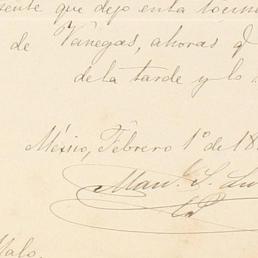 sente que dejo en la
de Vanegas, ahoras q
de la tarde y lo
México, Febrero 1º de 18
Man. S.
Malo.